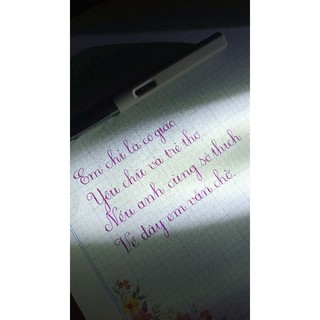 Em chỉ là cô giáo
Yêu chữ và trẻ thơ
Nếu anh cùng sở thích
Về đây em vẫn chờ.